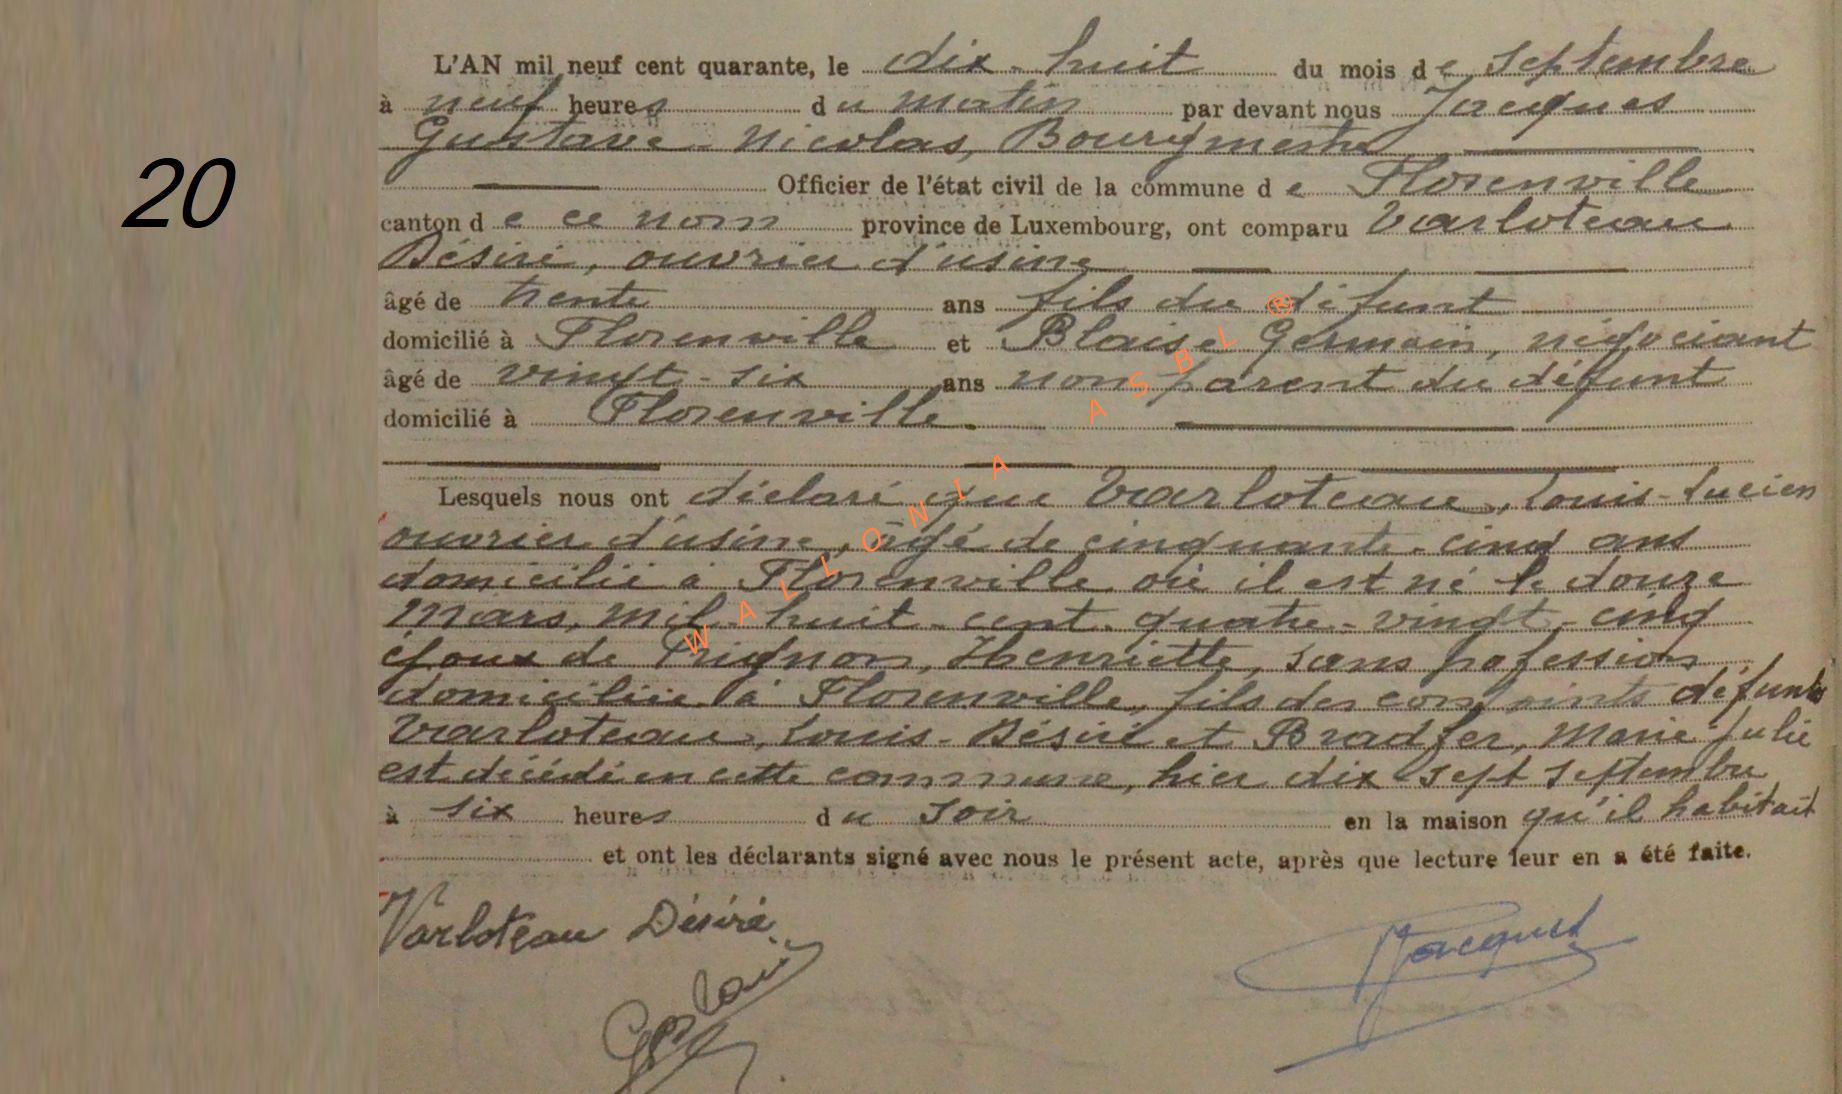 20
L'AN mil neuf cent quarante, le dix-huit du mois de Septembre
à neuf heures du matin par devant nous Jacques
Gustave-Nicolas, Bourgmestre
Officier de l'état civil de la commune de Florenville
canton de ce nom province de Luxembourg, ont comparu Varloteau
Désiré, ouvrier d'usine
âgé de trente ans fils du défunt
domicilié à Florenville et Blaise Germain, négociant
âgé de vingt-six ans non parent du défunt
domicilié à Florenville.
Lesquels nous ont déclaré que Varloteau, Louis-Lucien
ouvrier d'usine, âgé de cinquante-cinq ans
domicilié à Florenville où il est né le douze
Mars, mil-huit-cent-quatre-vingt-cinq
époux de Prignon, Henriette, sans profession
domiciliée à Florenville, fils des conjoints défunts
Varloteau, Louis-Désiré et Bradfer, Marie-Julie
est décédé en cette commune, hier dix-sept Septembre
à six heures du soir en la maison qu'il habitait
et ont les déclarants signé avec nous le présent acte, après que lecture leur en a été faite.
Varloteau Désiré
Jacques
WALLONIA ASBL ®